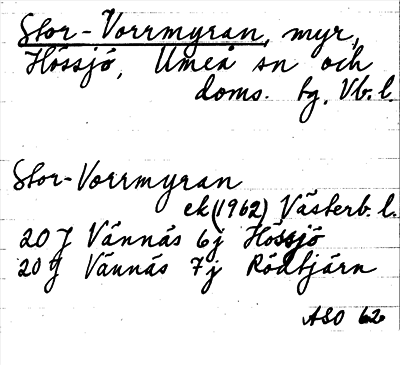 Stor-Vorrmyran, myr,
Hössjö, Umeå sn och
doms. tg, Vb.l.
Stor-Vorrmyran
ek (1962) Västerb. l.
20 J Vännäs 6j Hössjö
20 J Vännäs 7j Rödtjärn
ASO 62